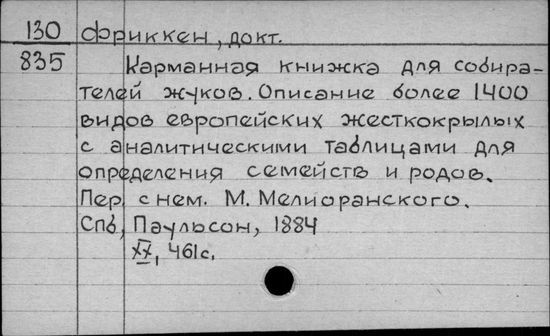 130 Фриккен, докт.
835 Карманная книжка для собира-
телей жуков. Описание более 1400
видов европейских жесткокрылых
с аналитическими таблицами для
определения семейств и родов.
Пер. с нем. М. Мелиоранского.
Спб, Паульсон, 1884
XX, 461с.